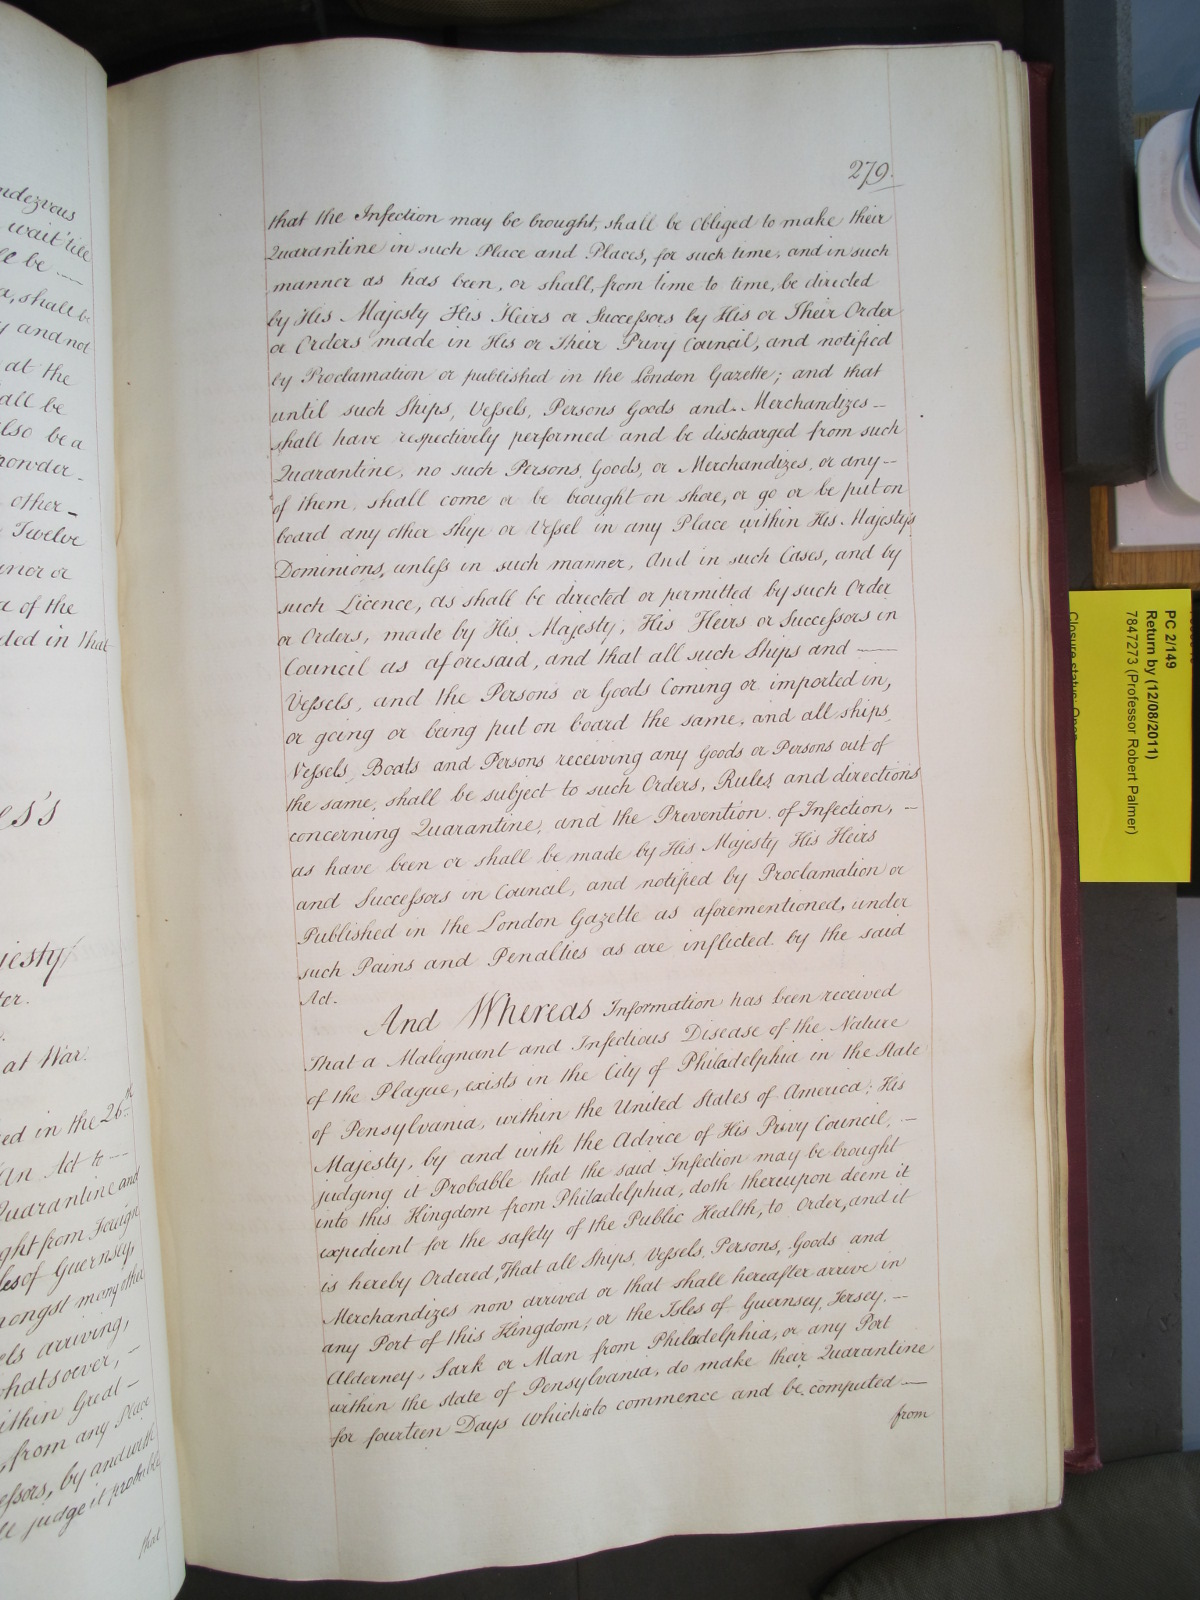 ndezvous
wait 'till
be
shall be
and not
at the
all be
also be a
powder
other
Twelve
of the
ded in that
ess's
jesty
ter.
at War.
ed in the 26th
An Act to
Quarantine and
ght from Foreign
les of Guernsey,
mongst many other
els arriving,
whatsoever,
ithin Great
from any Place
essors, by and with
judge it probable
that
279.
that the Infection may be brought, shall be Obliged to make their
Quarantine in such Place and Places, for such time, and in such
manner as has been, or shall, from time to time, be directed
by His Majesty His Heirs or Successors by His or Their Order
or Orders made in His or Their Privy Council, and notified
by Proclamation or published in the London Gazette; and that
until such Ships, Vessels, Persons Goods and Merchandizes
shall have respectively performed and be discharged from such
Quarantine, no such Persons, Goods, or Merchandizes, or any
of them, shall come or be brought on shore, or go or be put on
board any other ship or Vessel in any Place within His Majesty's
Dominions, unless in such manner, And in such Cases, and by
such Licence, as shall be directed or permitted by such Order
or Orders, made by His Majesty, His Heirs or Successors in
Council as aforesaid, and that all such Ships and
Vessels, and the Persons or Goods Coming or imported in,
or going or being put on board the same, and all ships,
Vessels, Boats and Persons receiving any Goods or Persons out of
the same, shall be subject to such Orders, Rules and directions
concerning Quarantine, and the Prevention of Infection,
as have been or shall be made by His Majesty His Heirs
and Successors in Council, and notified by Proclamation or
Published in the London Gazette as aforementioned, under
such Pains and Penalties as are inflicted by the said
Act.
And Whereas Information has been received
That a Malignant and Infectious Disease of the Nature
of the Plague, exists in the City of Philadelphia in the State
of Pensylvania, within the United States of America; His
Majesty, by and with the Advice of His Privy Council,
judging it Probable that the said Infection may be brought
into this Kingdom from Philadelphia, doth thereupon deem it
expedient for the safety of the Public Health, to Order, and it
is hereby Ordered, That all Ships, Vessels, Persons, Goods and
Merchandizes now arrived or that shall hereafter arrive in
any Port of this Kingdom, or the Isles of Guernsey, Jersey,
Alderney, Sark or Man from Philadelphia, or any Port
within the state of Pensylvania, do make their Quarantine
for fourteen Days which is to commence and be computed
from
PC 2/149
Return by (12/08/2011)
7847273 (Professor Robert Palmer)
Closure status: Open